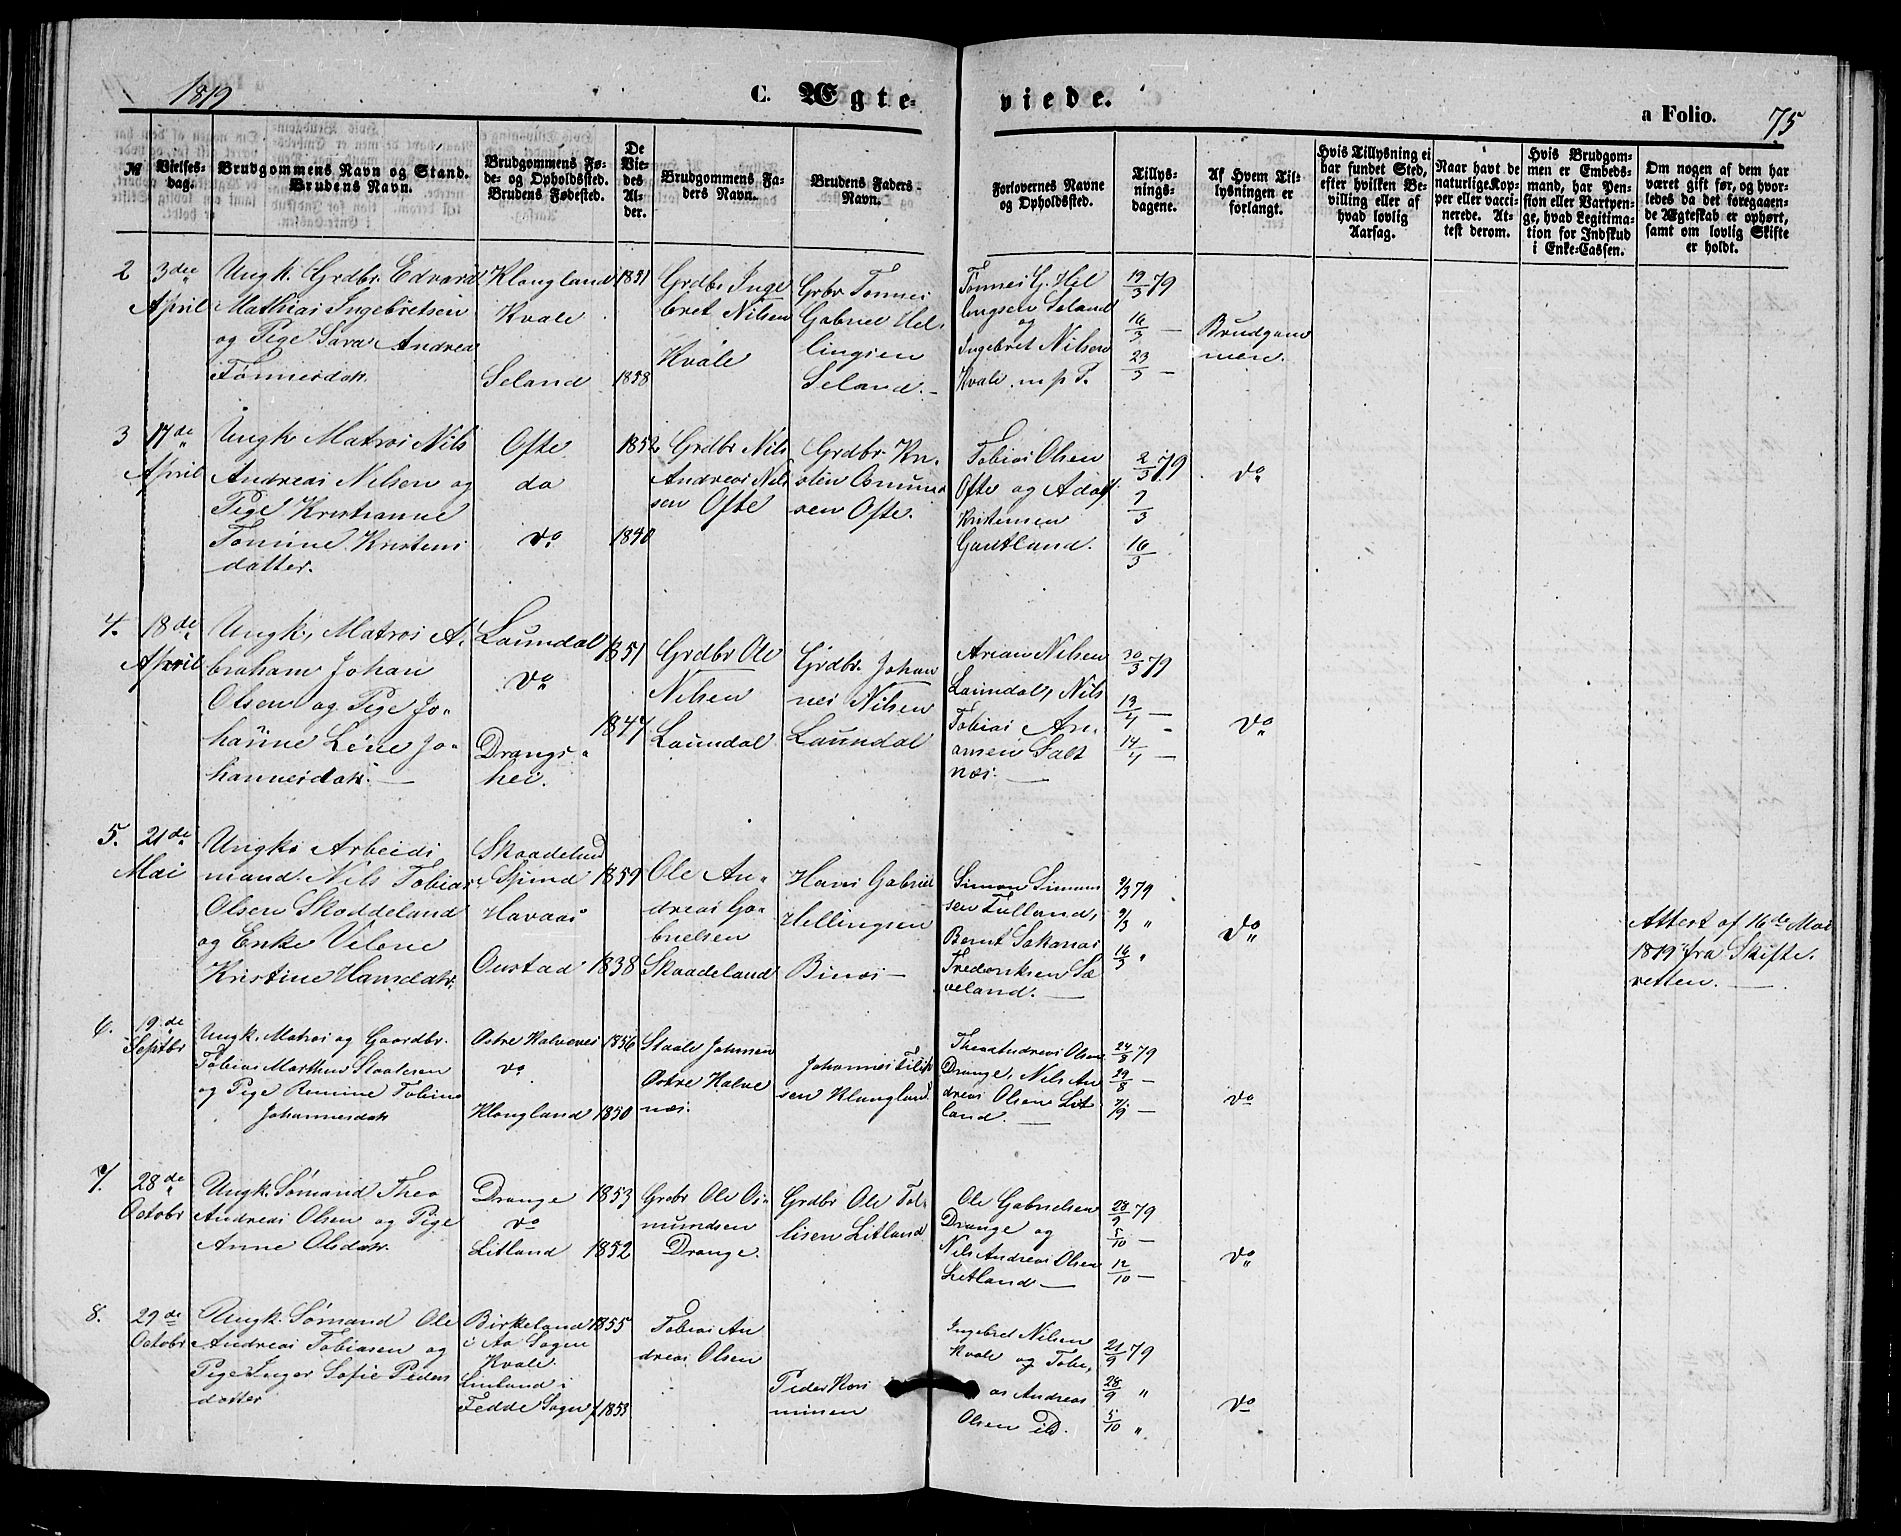 1879
C. Ægte-
viede.
a Folio.
75
№
Vielses-
dag.
Brudgommens Navn og Stand.
Brudens Navn.
Brudgommens Fø-
de- og Opholdssted.
Brudens Fødested.
De
Vie-
des
Al-
der.
Brudgommens Fa-
ders Navn.
Brudens Faders
Navn.
Forlovernes Navne
og Opholdssted.
Tillys-
nings-
dagene.
Af Hvem Til-
lysningen er
forlangt.
Hvis Tillysning ei
har fundet Sted,
efter hvilken Be-
villing eller af
hvad lovlig
Aarsag.
Naar havt de
naturlige Kop-
per eller vacci-
nerede. At-
test derom.
Hvis Brudgom-
men er Embeds-
mand, har Pen-
sion eller Vartpen-
ge, hvad Legitima-
tion for Indskud
i Enke-Cassen.
Om nogen af dem har
været gift før, og hvor-
ledes da det foregaaen-
de Ægteskab er ophørt,
samt om lovlig Skifte
er holdt.
2
3die
April
Ungk. Grdbr. Edvard
Mathias Ingebretsen
og Pige Sara Andrea
Tønnesdatr.
Klongland
Kvale
Seland
1851
1858
Grdbr Inge
bret Nilsen
Kvåle
Grbr Tønnes
Gabriel Hel
lingsen
Seland.
Tønnes G. Hel
lingsen Seland
og
Ingebret Nilsen
Kvale m p T.
19/3 79
16/3 —
23/3 —
Brudgom
men.
3
17de
April
Ungk. Matros Nils
Andreas Nilsen og
Pige Kristianne
Tomine Kristens
datter.
Ofte
do
do
1852
1840
Grdbr Nils
Andreas Nils
sen Ofte
Grdbr. Kri
sten Omund
sen Ofte.
Tobias Olsen
Ofte og Adolf
Kristensen
Gautland.
2/3 79
9/3
16/3
do
4.
18de
April
Ungk. Matros A-
braham Johan
Olsen og Pige Jo-
hanne Lene Jo-
hannesdatr.
Laundal
do
Drangs-
hei.
1851
1847
Grdbr Ole
Nilsen
Laundal
Grdbr. Johan
nes Nilsen
Laundal
Arian Nilsen
Laundal, Nils
Tobias Ari-
ansen Salt
næs.
30/3 79
13/4 —
14/4 —
do
5.
21de
Mai
Ungk. Arbeids
mand Nils Tobias
Olsen Skoddeland
og Enke Vilene
Kristine Hansdatr.
Skaadeland
Spind
Havaas
Oustad
1859
1838
Ole An-
dreas Ga-
brielsen
Skaadeland
Hans Gabriel
Hellingsen
Binæs
Simon Simon
sen Tulland,
Bernt Sakarias
Fredriksen Sæ
veland.
9/3 79
9/3 "
16/3 "
do
Attest af 16de Mai
1879 fra Skifte-
retten.
6.
19de
Septbr
Ungk. Matros og Gaardbr.
Tobias Marthin Staalesen
og Pige Remine Tobine
Johannesdatr
Ostre Halvenes
do
Klongland
1856
1850
Staale Johnsen
Ostre Halve
næs.
Johannes Tilif
sen Klongland
Theo Andreas Olsen
Drange, Nils An
dreas Olsen Lit
land.
24/8 79
29/8 —
7/9 —
do
7.
28de
Octobr
Ungk. Sømand Theo
Andreas Olsen og Pige
Anne Olsdatr.
Drange
do
Litland
1853
1852
Grdbr Ole Os-
mundsen
Drange.
Grdbr Ole Tol-
lisen Litland
Ole Gabrielsen
Drange og
Nils Andreas Olsen
Litland
28/9 79
5/10 —
12/10 —
do
8.
29de
Octobr
Ungk. Sømand Ole
Andreas Tobiasen og
Pige Inger Sofie Peders
datter
Birkeland
i Aa Sogn
Kvale
Linland i
Fedde Sogn
1855
f 1853
Tobias An
dreas Olsen
Peder Ras
musen
Ingebret Nilsen
Kvale og Tobi
as Andreas
Olsen ibd.
21/9 79
28/9 "
5/10 "
do